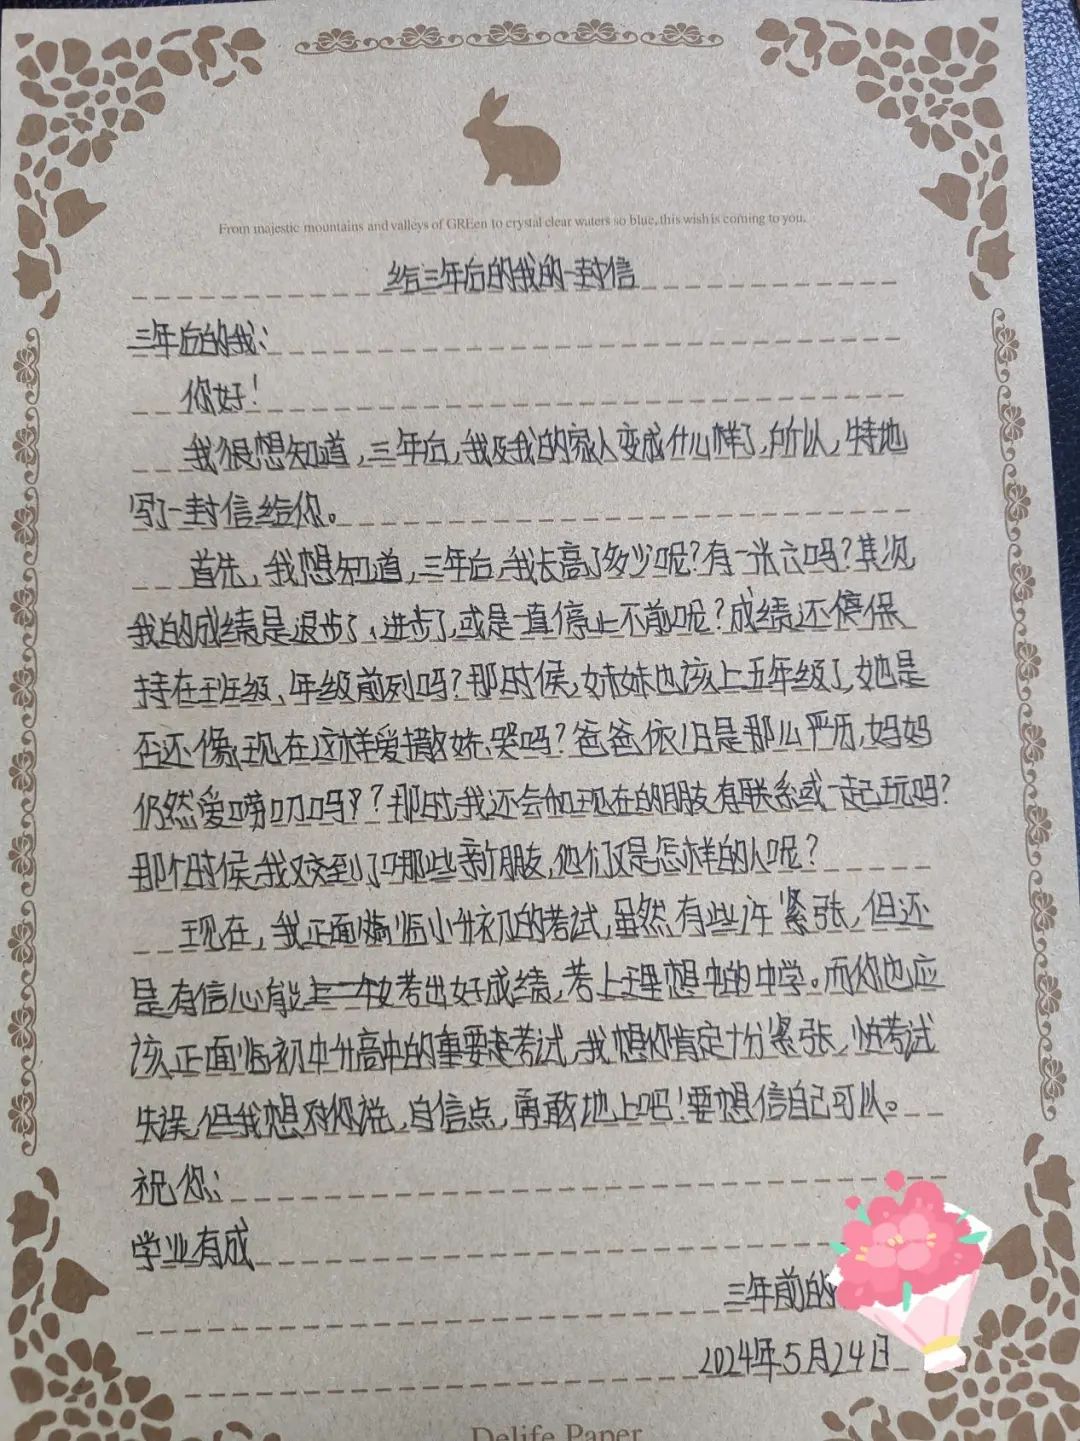 From majestic mountains and valleys of GREen to crystal clear waters so blue, this wish is coming to you.
给三年后的我的一封信
三年后的我:
你好!
我很想知道,三年后,我及我的家人变成什么样了,所以,特地
写了一封信给你。
首先,我想知道,三年后,我长高了多少呢?有一张六吗?其次
我的成绩是退步了、进步了,或是一直停止不前呢?成绩还停保
持在班级、年级前列吗?那时候,妹妹也该上五年级了,她是
否还像现在这样爱撒娇、哭吗?爸爸依旧是那么严历,妈妈
仍然爱唠叨吗??那时,我还会和现在的朋友有联系或一起玩吗?
那个时候,我又交到了哪些新朋友,他们又是怎样的人呢?
现在,我正面临小升初的考试,虽然有些许紧张,但还
是有信心能考出好成绩,考上理想中的中学。而你也应
该正面临初中升高中的重要考试,我想你肯定十分紧张,怕考试
失误,但我想对你说,自信点,勇敢地上吧!要想信自己可以。
祝你:
学业有成
三年前的
2024年5月24日
Delife Paper